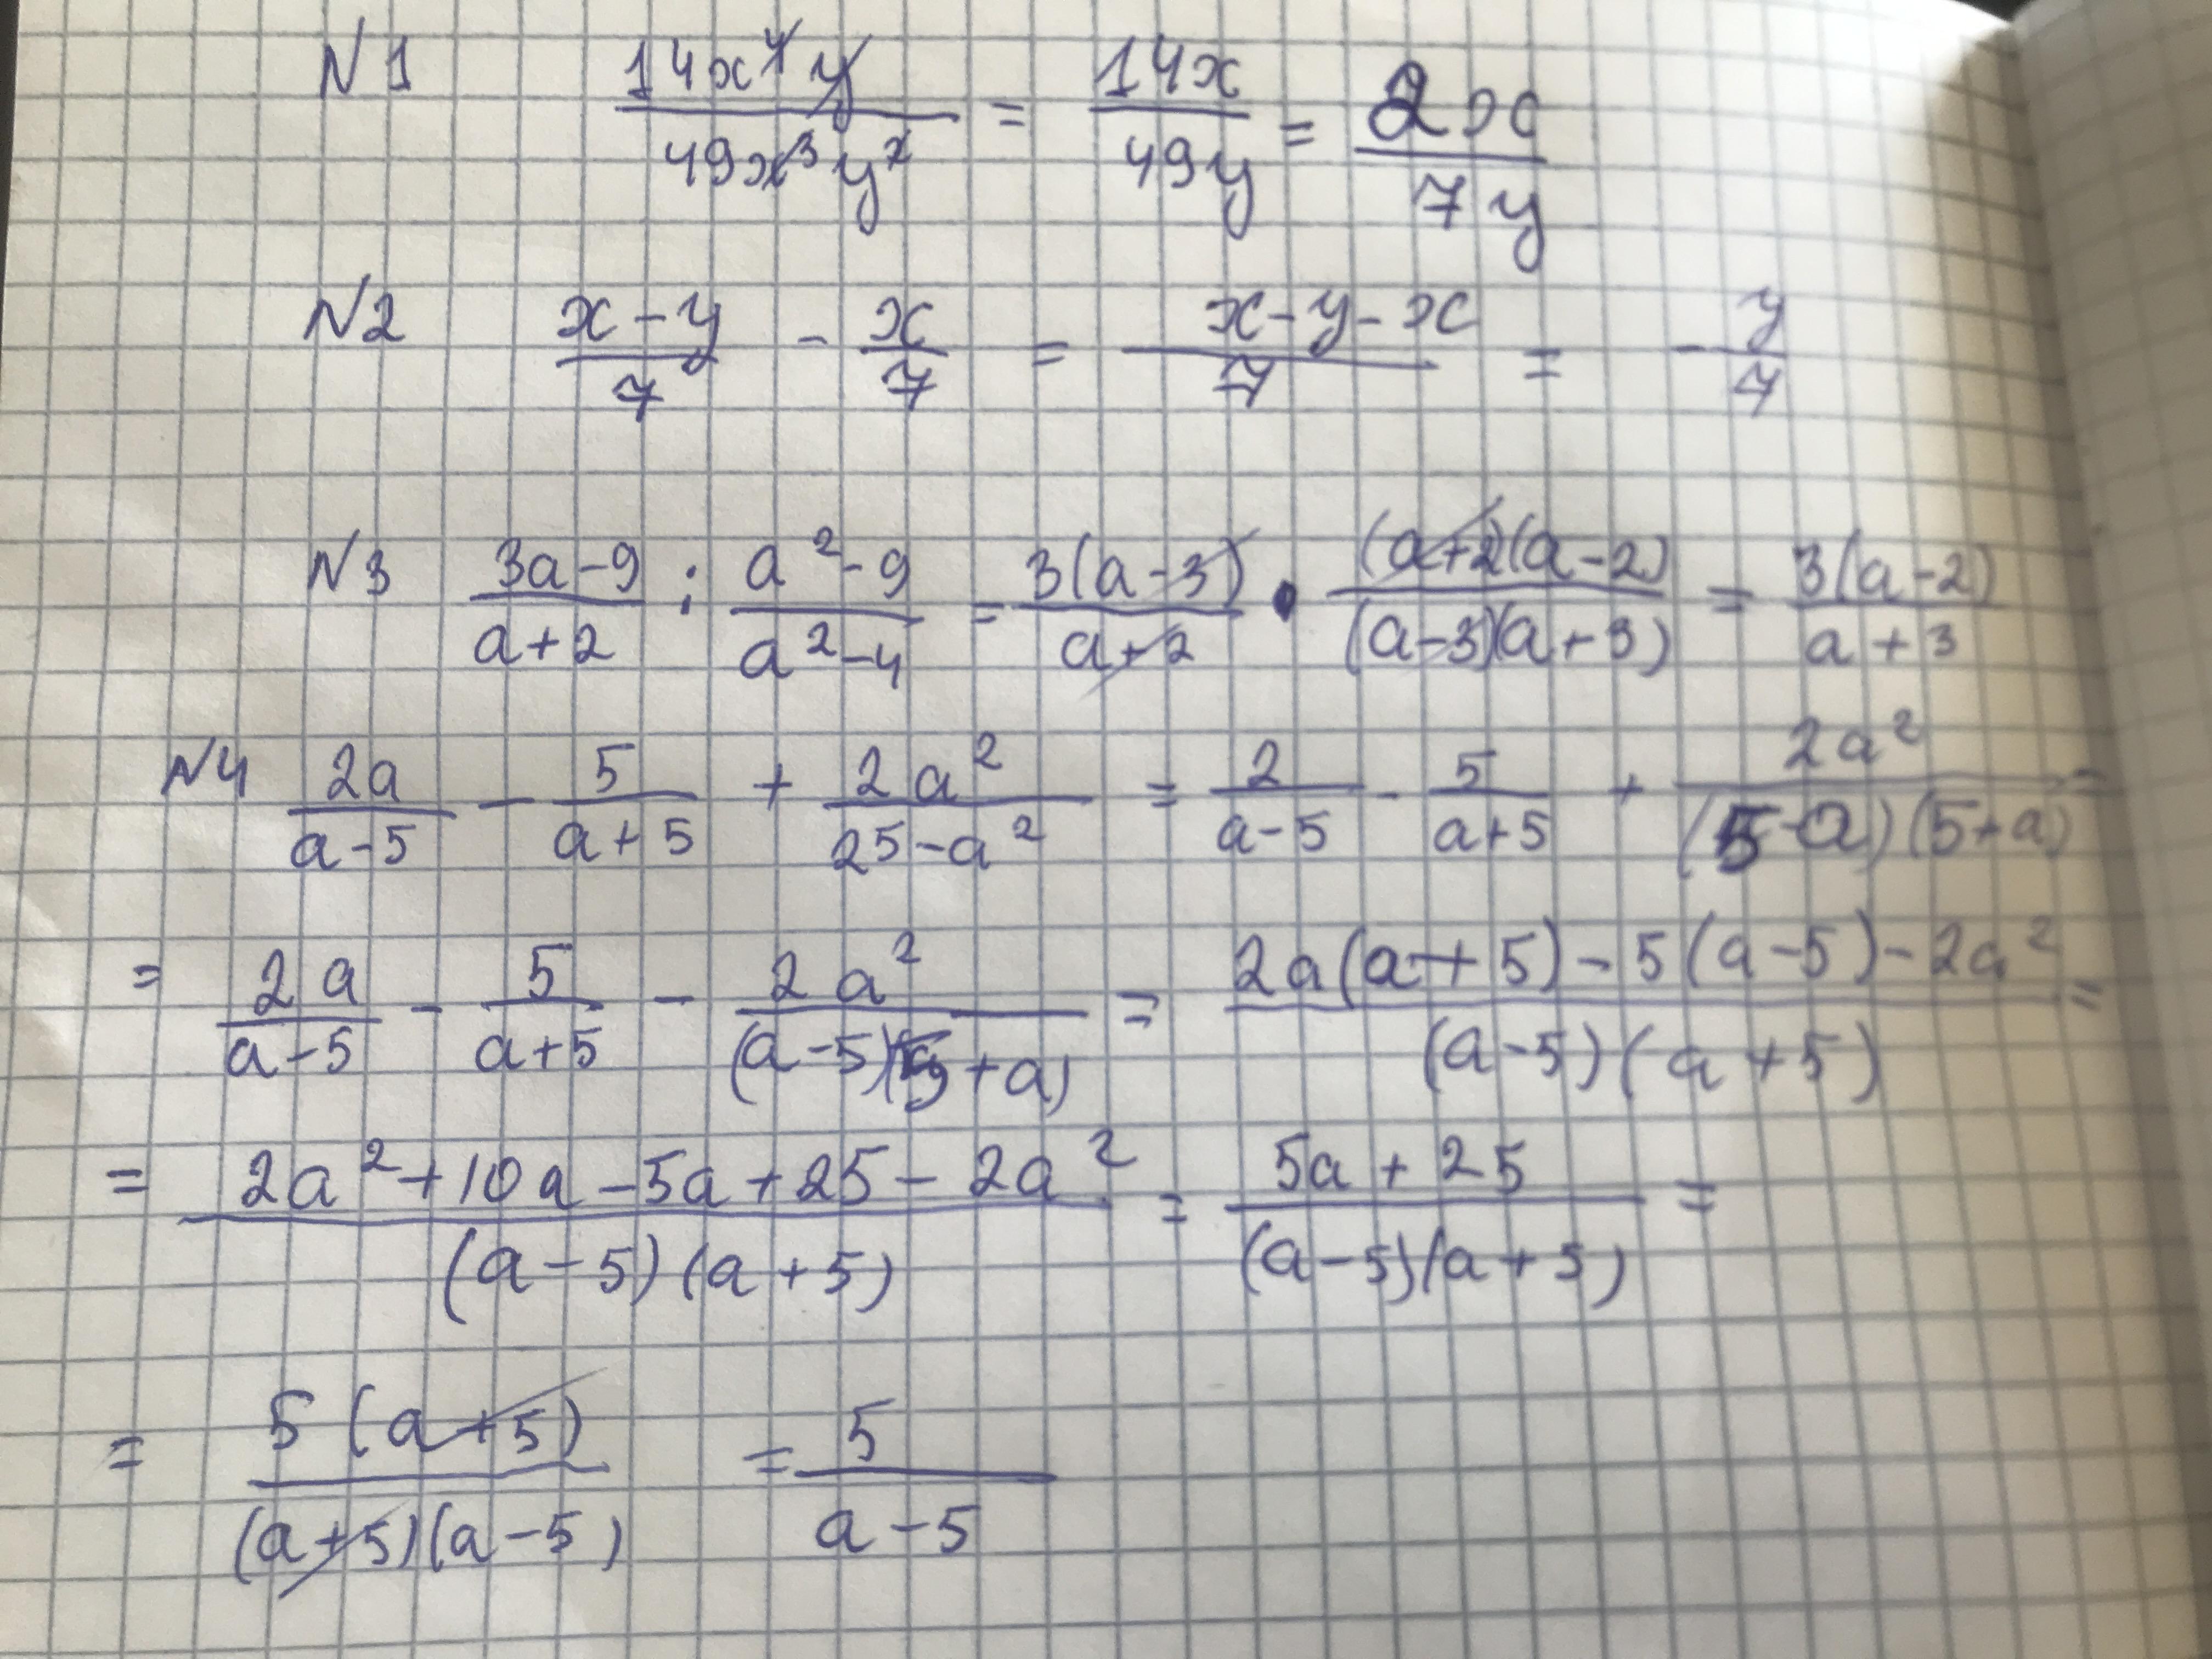 N1 14x⁴y/49x³y² = 14x/49y = 2x/7y
N2 x-y/7 - x/7 = x-y-x/7 = -y/7
N3 3a-9/a+2 : a²-9/a²-4 = 3(a-3)/a+2 • (a+2)(a-2)/(a-3)(a+3) = 3(a-2)/a+3
N4 2a/a-5 - 5/a+5 + 2a²/25-a² = 2/a-5 - 5/a+5 + 2a²/(5-a)(5+a) =
= 2a/a-5 - 5/a+5 - 2a²/(a-5)(5+a) = 2a(a+5)-5(a-5)-2a²/(a-5)(a+5) =
= 2a²+10a-5a+25-2a²/(a-5)(a+5) = 5a+25/(a-5)(a+5) =
= 5(a+5)/(a+5)(a-5) = 5/a-5